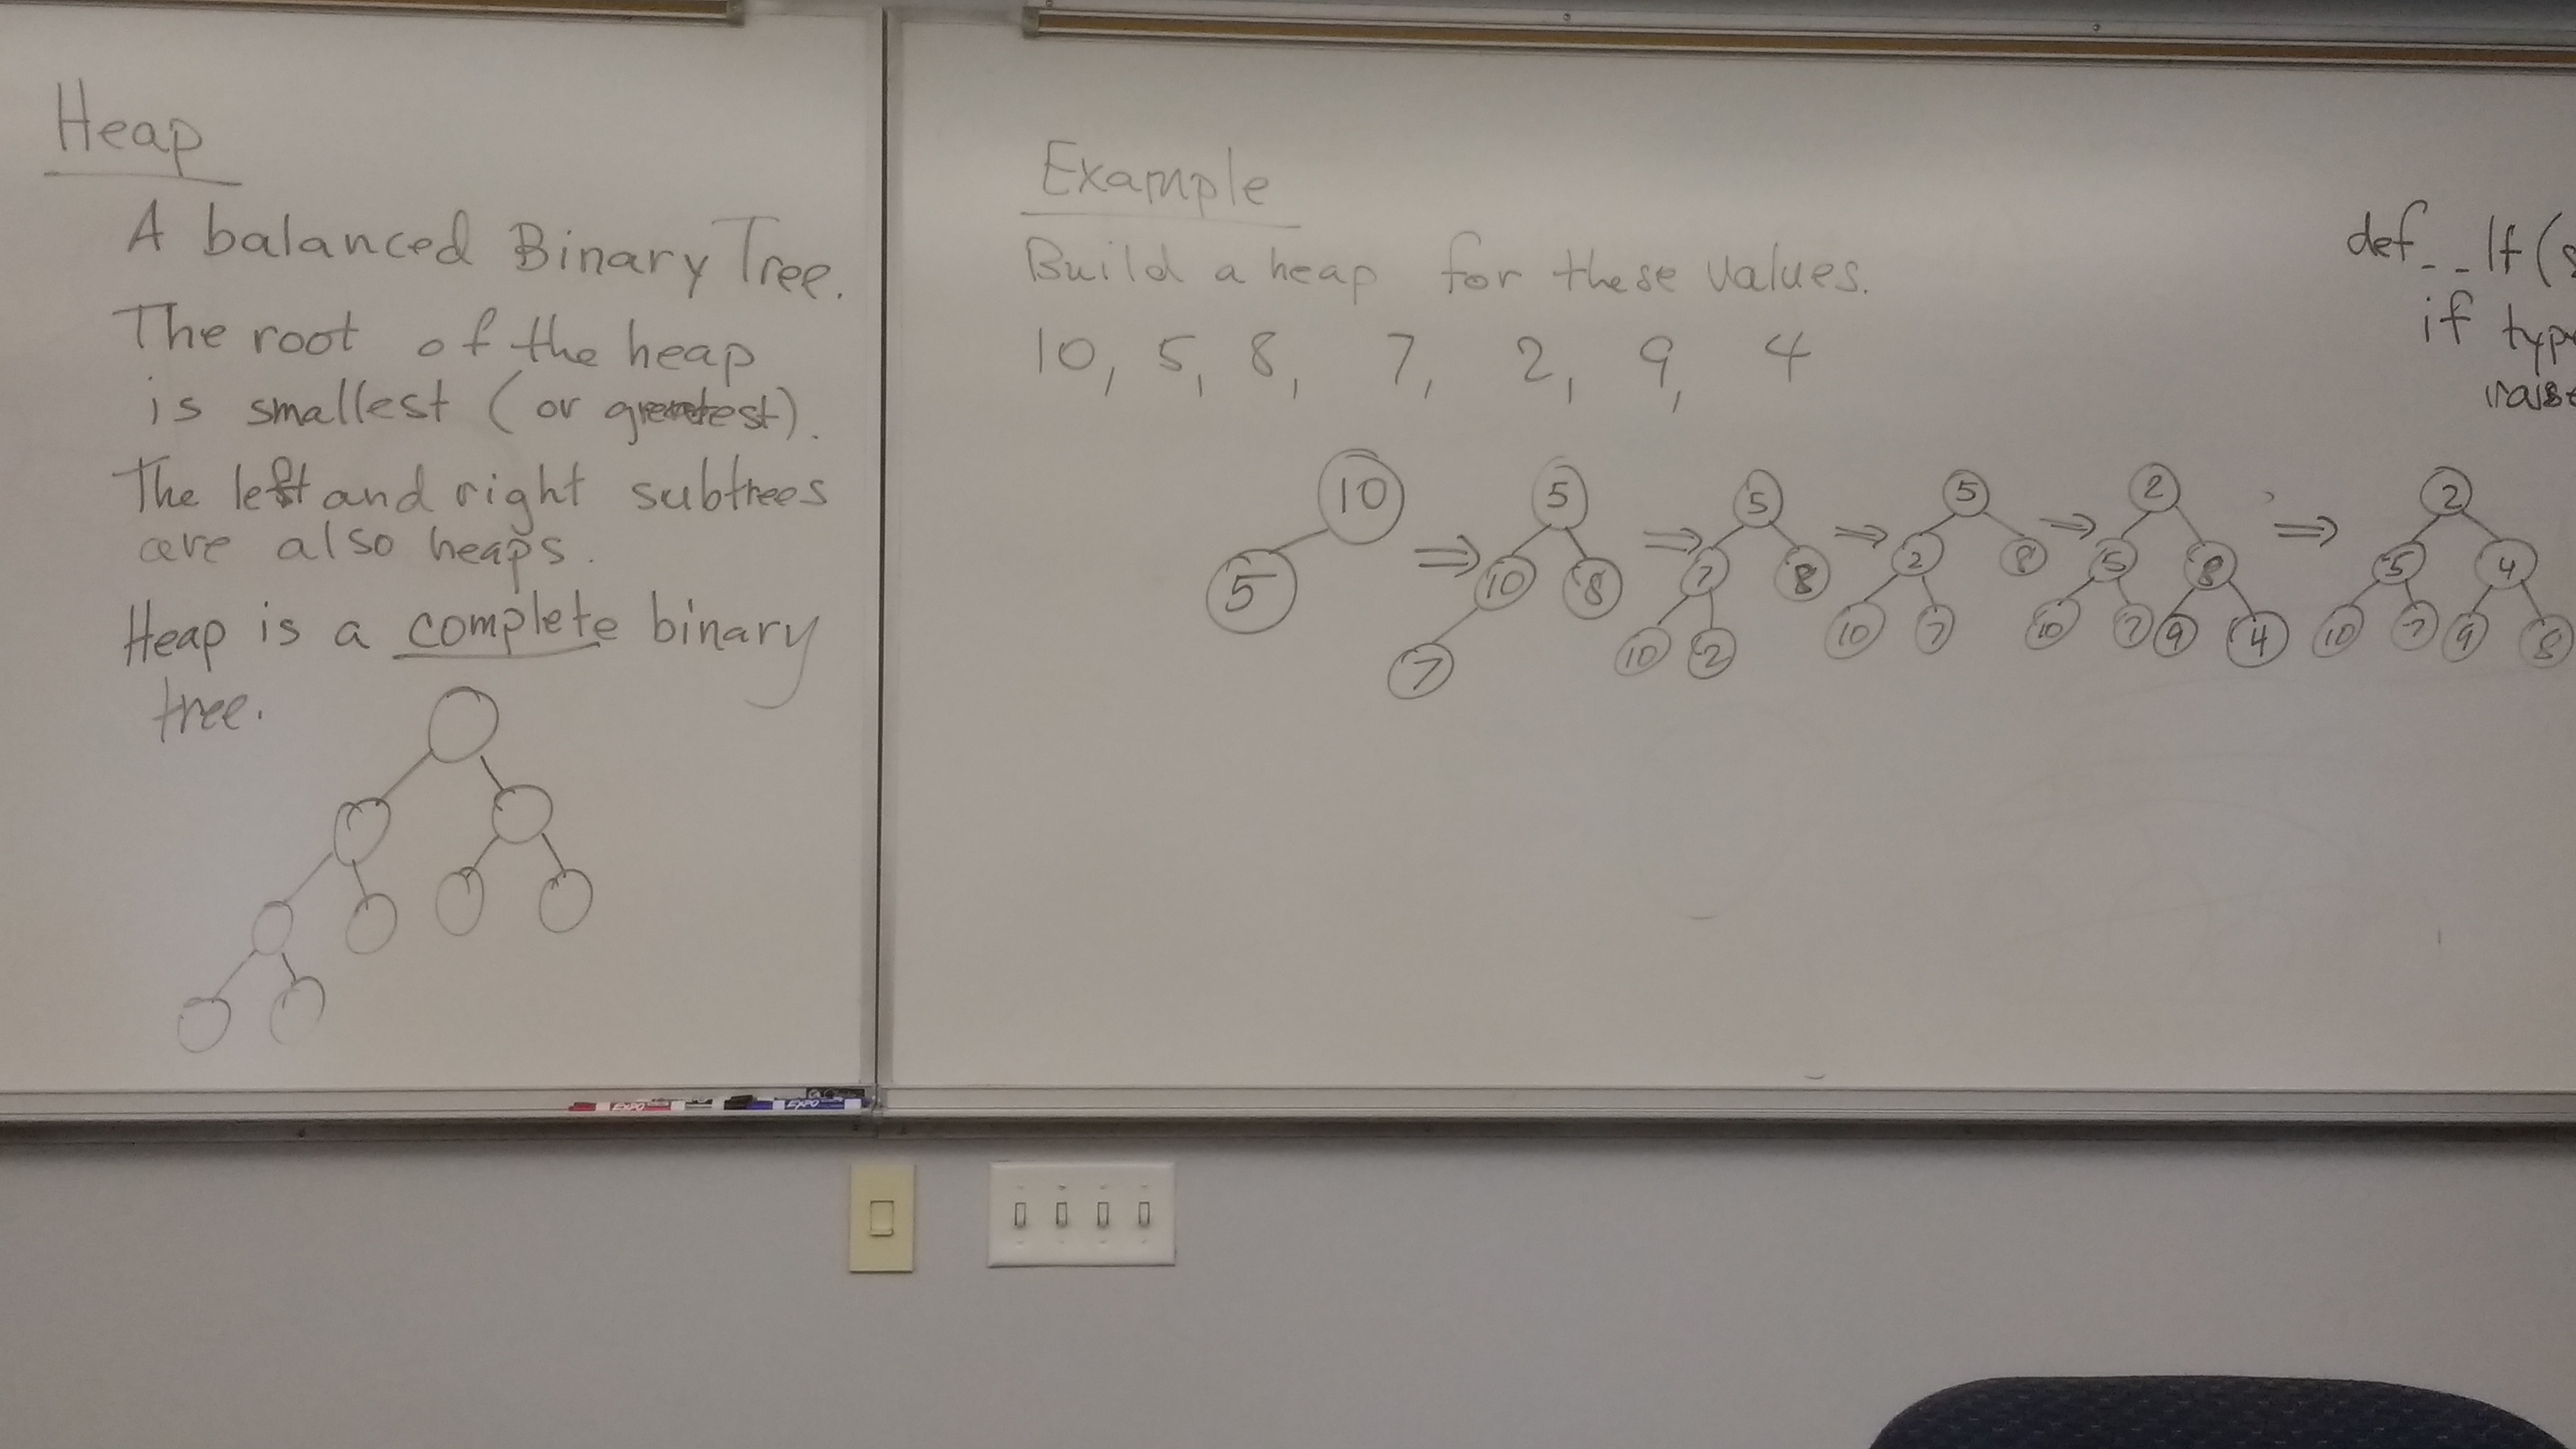 Heap
A balanced Binary Tree.
The root of the heap
is smallest (or greatest).
The left and right subtrees
are also heaps.
Heap is a complete binary
tree.
Example
Build a heap for these values.
10, 5, 8, 7, 2, 9, 4
10
5
⇒
5
10 8
7
⇒
5
7 8
10 2
⇒
5
2 8
10 7
⇒
2
5 8
10 7 9 4
⇒
2
5 4
10 7 9 8
def __lt(
if type
raise
EXPO
EXPO